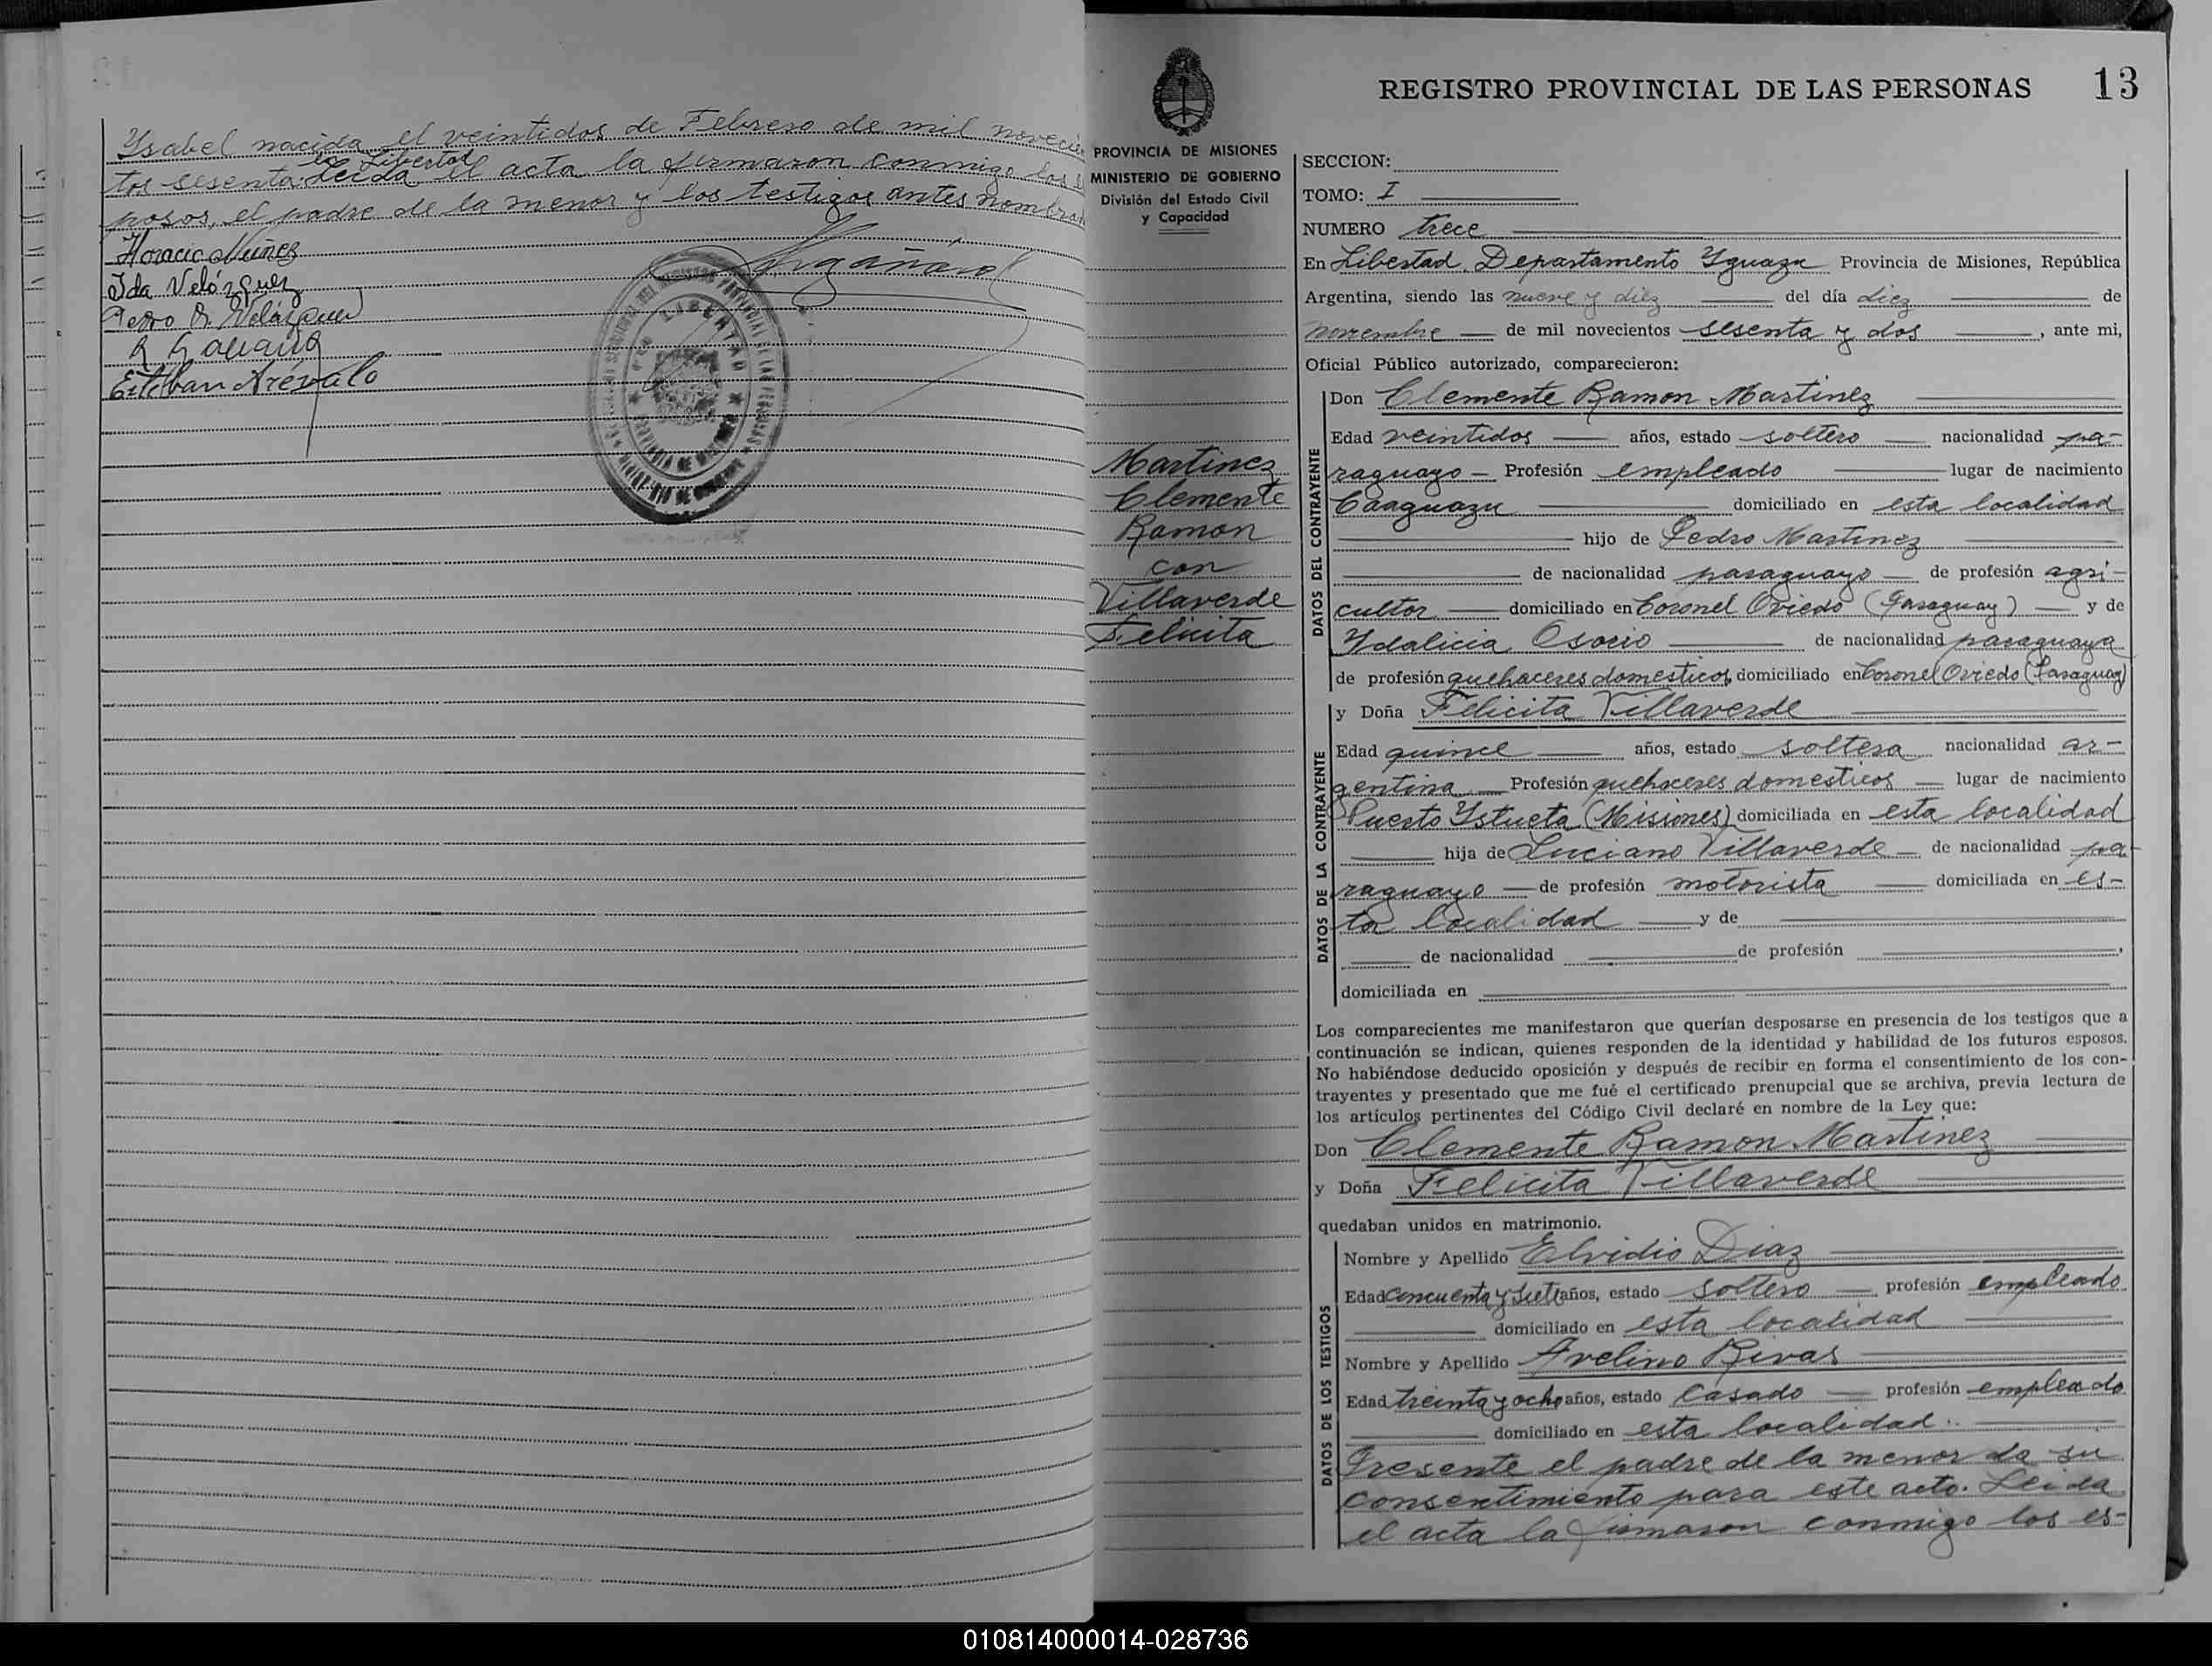 Ysabel nacida el veintidos de Febrero de mil novecien
tos sesenta en Libertad. Leida el acta la firmaron conmigo los es
posos, el padre de la menor y los testigos antes nombra
Horacio Nuñez
Ida Velázquez
Pedro R. Velázquez
Esteban Arévalo
LIBERTAD
REGISTRO PROVINCIAL DE LAS PERSONAS
13
PROVINCIA DE MISIONES
MINISTERIO DE GOBIERNO
División del Estado Civil
y Capacidad
Martinez
Clemente
Ramon
con
Villaverde
Felicita
SECCION:
TOMO: I
NUMERO trece
En Libertad, Departamento Yguazu Provincia de Misiones, República
Argentina, siendo las nueve y diez del día diez de
noviembre de mil novecientos sesenta y dos, ante mi,
Oficial Público autorizado, comparecieron:
DATOS DEL CONTRAYENTE
Don Clemente Ramon Martinez
Edad veintidos años, estado soltero nacionalidad pa-
raguayo Profesión empleado lugar de nacimiento
Caaguazu domiciliado en esta localidad
hijo de Pedro Martinez
de nacionalidad paraguayo de profesión agri-
cultor domiciliado en Coronel Oviedo (Paraguay) y de
Ydalicia Osorio de nacionalidad paraguaya
de profesión quehaceres domesticos domiciliado en Coronel Oviedo (Paraguay)
DATOS DE LA CONTRAYENTE
y Doña Felicita Villaverde
Edad quince años, estado soltera nacionalidad ar-
gentina Profesión quehaceres domesticos lugar de nacimiento
Puerto Ystueta (Misiones) domiciliada en esta localidad
hija de Luciano Villaverde de nacionalidad pa-
raguayo de profesión motorista domiciliada en es-
ta localidad y de
de nacionalidad de profesión ,
domiciliada en
Los comparecientes me manifestaron que querían desposarse en presencia de los testigos que a
continuación se indican, quienes responden de la identidad y habilidad de los futuros esposos.
No habiéndose deducido oposición y después de recibir en forma el consentimiento de los con-
trayentes y presentado que me fué el certificado prenupcial que se archiva, previa lectura de
los artículos pertinentes del Código Civil declaré en nombre de la Ley que:
Don Clemente Ramon Martinez
y Doña Felicita Villaverde
quedaban unidos en matrimonio.
DATOS DE LOS TESTIGOS
Nombre y Apellido Elvidio Diaz
Edad Cincuenta y siete años, estado soltero profesión empleado
domiciliado en esta localidad
Nombre y Apellido Avelino Rivas
Edad treinta y ocho años, estado Casado profesión empleado
domiciliado en esta localidad.
Presente el padre de la menor da su
consentimiento para este acto. Leida
el acta la firmaron conmigo los es-
010814000014-028736